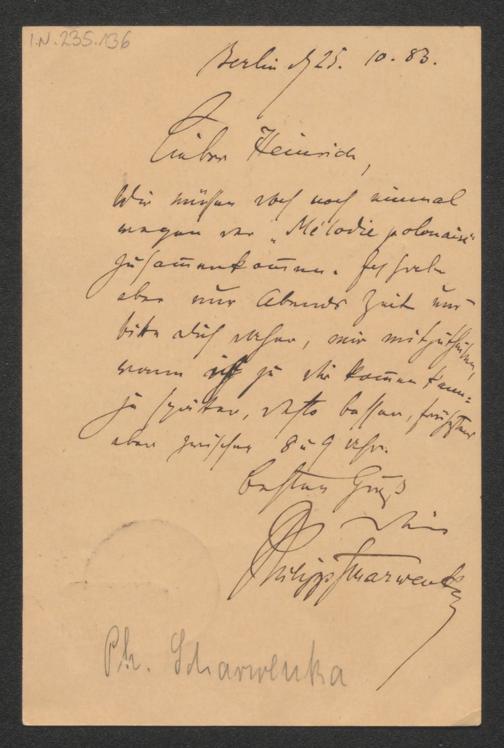 I.N. 235.136
Berlin d 25. 10. 83.
Lieber Heinrich,
Wir müssen doch noch einmal
wegen der „Mélodie polonaise"
zusammenkommen. Ich habe
aber nur Abends Zeit und
bitte Dich daher, mir mitzutheilen,
wann ich zu Dir kommen kann.
Je später, desto besser, frühstens
aber zwischen 8 u 9 Uhr.
Besten Gruß
Dein
Philipp Scharwenka
Ph. Scharwenka